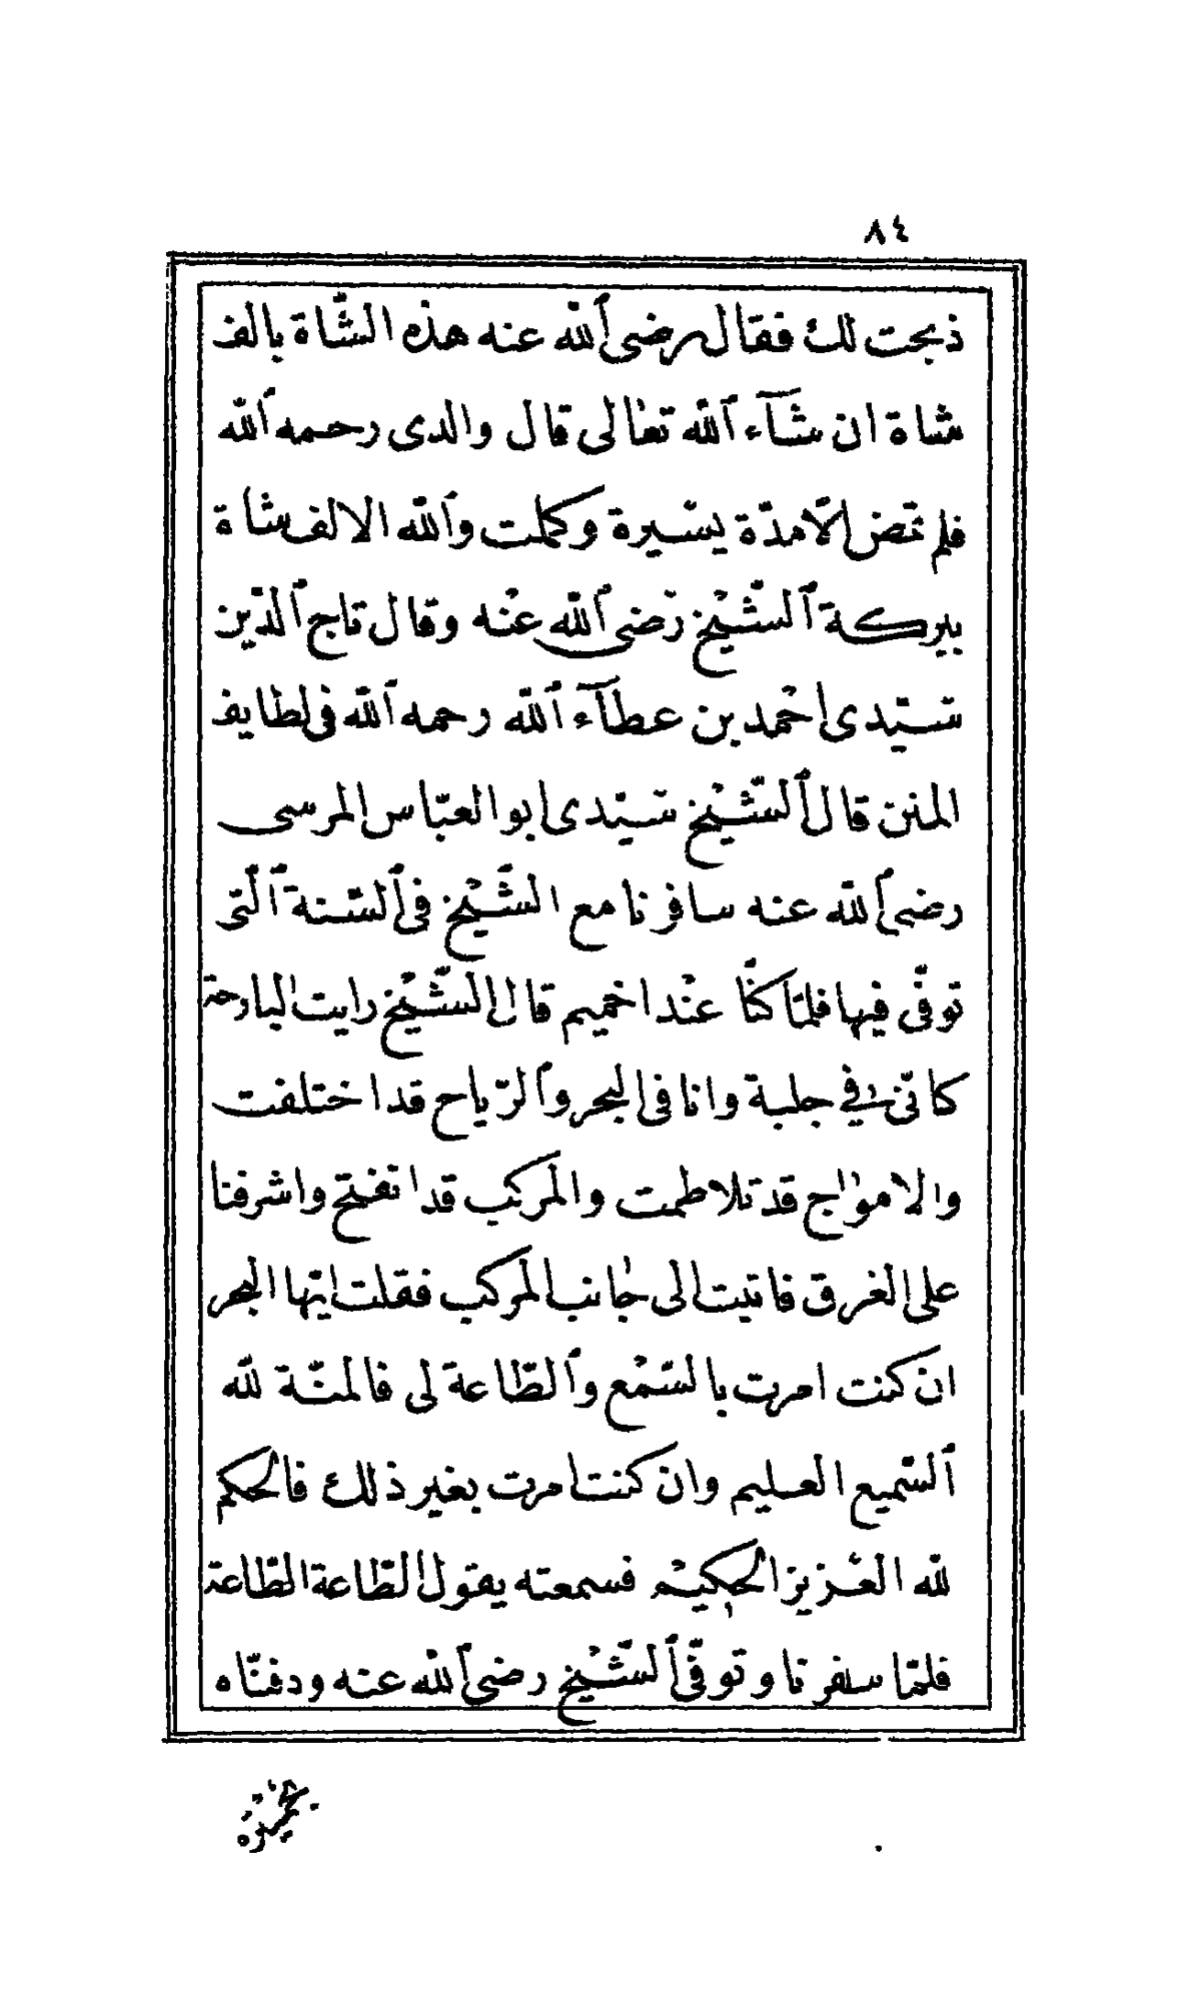 ٨٤
ذبحت لك فقال رضى الله عنه هذه الشّاة بالف
شاة ان شآء الله تعالى قال والدى رحمه الله
فلم تمض الّا مدّة يسيرة وكملت والله الالف شاة
ببركة الشّيخ رضى الله عنه وقال تاج الدّين
سيّدى احمد بن عطآء الله رحمه الله فى لطايف
المنن قال الشّيخ سيّدى ابو العبّاس المرسى
رضى الله عنه سافرنا مع الشّيخ فى السّنة الّتى
توفّى فيها فلمّا كنّا عند اخميم قال الشّيخ رايت البارحة
كانّى فى جلبة وانا فى البحر والرّياح قد اختلفت
والامواج قد تلاطمت والمركب قد انفتح واشرفنا
على الغرق فاتيت الى جانب المركب فقلت ايّها البحر
ان كنت امرت بالسّمع والطّاعة لى فالمنّة لله
السّميع العليم وان كنت امرت بغير ذلك فالحكم
لله العزيز الحكيم فسمعته يقول الطّاعة الطّاعة
فلمّا سفرنا وتوفّى الشّيخ رضى الله عنه ودفنّاه